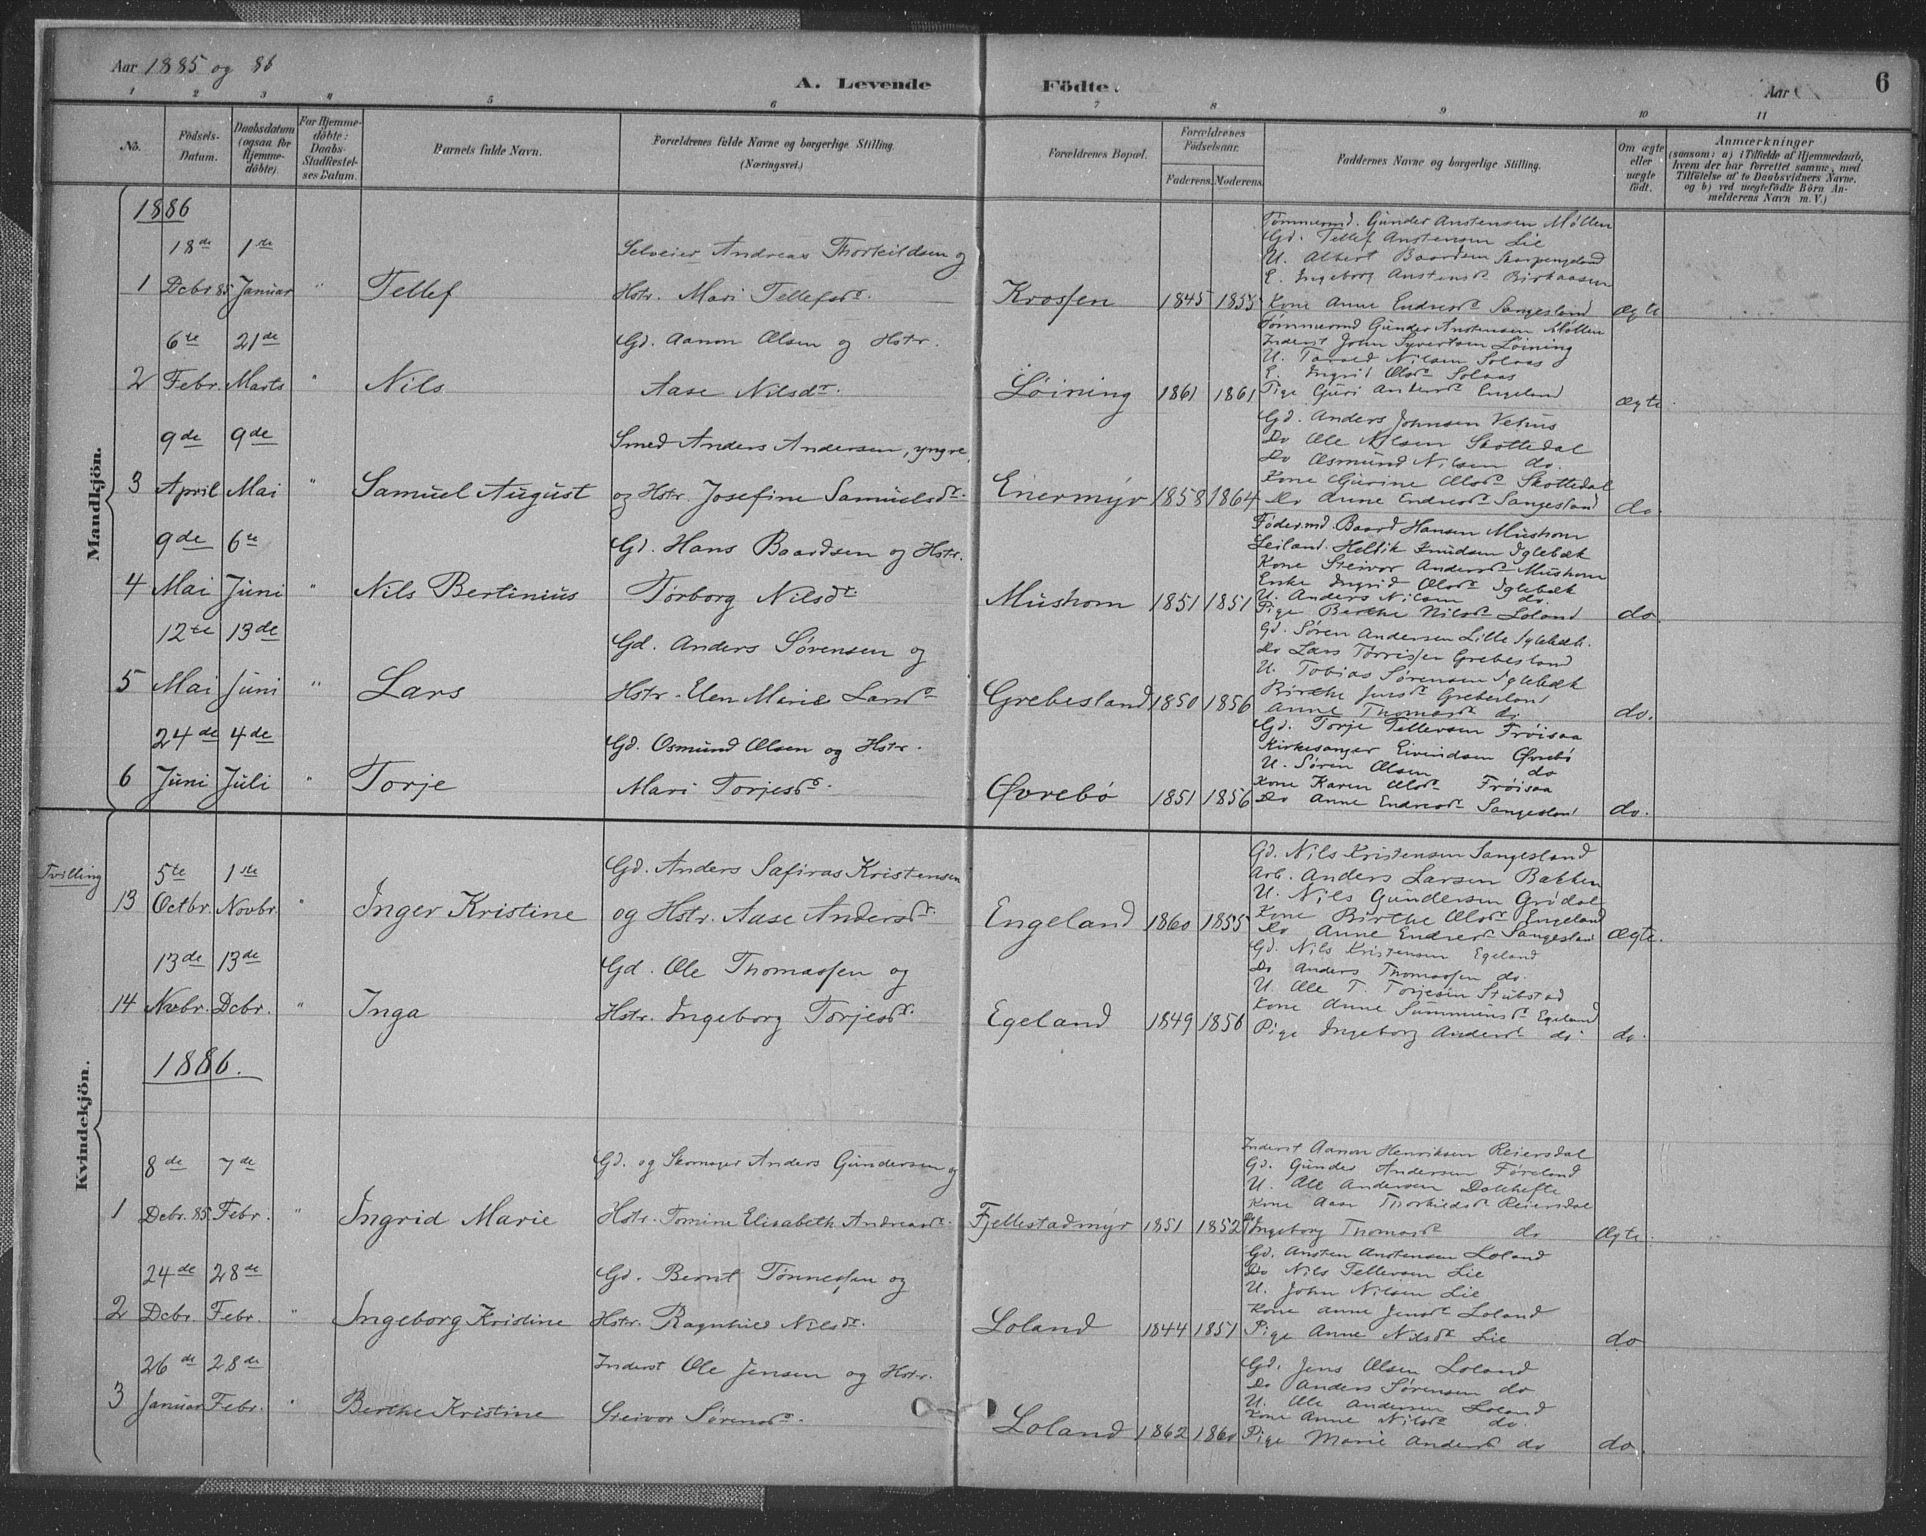 Aar 1885 og 86
A. Levende Födte. Aar 6
1 2 3 4 5 6 7 8 9 10 11
No. Födsels-Datum. Daabsdatum (ogsaa for Hjemme-döbte). For Hjemme-döbte: Daabs-Stadfæstel-ses Datum. Barnets fulde Navn. Forældrenes fulde Navne og borgerlige Stilling. (Næringsvei.) Forældrenes Bopæl. Forældrenes Födselsaar. Faderens. Moderens. Faddernes Navne og borgerlige Stilling. Om ægte eller uægte födt. Anmærkninger (saasom: a) i Tilfælde af Hjemmedaab, hvem der har forrettet samme, med Tilföielse af to Daabsvidners Navne. og b) ved uægtefödte Börn An-melderens Navn m. V.)
Mandkjön.
1886
1 18de Dcbr. 85 1ste Januar " Tellef Selveier Andreas Thorkildsen og Hstr. Mari Tellefsdr. Krossen 1845 1855 ægte
Tømmermd. Gunder Anstensen Møllen
Gd. Tellef Anstensen Lie
U. Albert Baardsen Skarpengland
E. Ingeborg Anstensdr Birkaasen
Kone Anne Endresdr Sangesland
2 6te Febr. 21de Marts " Nils Gd. Aanon Olsen og Hstr. Aase Nilsdr. Løining 1861 1861 ægte
Tømmermd Gunder Anstensen Møllen
Inderst John Syvertsen Løining
U. Tarald Nilsen Solaas
E. Ingrid Olsdr Solaas
Pige Guri Andersdr Engeland
3 9de April 9de Mai " Samuel August Smed Anders Andersen, yngre, og Hstr. Josefine Samuelsdr. Enermyr 1858 1864 do.
Gd. Anders Johnsen Vehus
Do Ole Nilsen Skottedal
Do Osmund Nilsen do.
Kone Gurine Olsdr Skottedal
Do Anne Endresdr Sangesland
4 9de Mai 6te Juni " Nils Bertinius Gd. Hans Baardsen og Hstr. Torborg Nilsdr. Mushom 1851 1851 do.
Føder.md. Baard Hansen Mushom
Leiland. Hellik Knudsen Iglebæk
Kone Steivor Andersdr Mushom
Enke Ingrid Olsdr Iglebæk
U. Anders Nilsen do.
Pige Berthe Nilsdr Loland
5 12te Mai 13de Juni " Lars Gd. Anders Sørensen og Hstr. Elen Marie Larsdr Grebesland 1850 1856 do.
Gd. Søren Andersen Lille Iglebæk
Do Lars Torrissen Grebesland
U. Tobias Sørensen Iglebæk
Birthe Jensdr Grebesland
Anne Thomasdr do.
6 24de Juni 4de Juli " Torje Gd. Osmund Olsen og Hstr. Mari Torjesdr. Øvrebö 1851 1856 do.
Gd. Torje Tellevsen Frøisaa
Kirkesanger Eivindsen Øvrebö
U. Søren Olsen do
Kone Karen Olsdr Frøisaa
Do Anne Endresdr Sangesland
Kvindekjön.
Tvilling
13 5te Octbr. 1ste Novbr. " Inger Kristine Gd. Anders Safiras Kristensen og Hstr. Aase Andersdr. Engeland 1860 1855 ægte.
Gd. Nils Kristensen Sangesland
Arb. Anders Larsen Bakken
U. Nils Gundersen Grödal
Kone Birthe Olsdr Engeland
Do Anne Endresdr Sangesland
14 13de Novbr. 13de Dcbr. " Inga Gd. Ole Thomassen og Hstr. Ingeborg Torjesdr. Egeland 1849 1856 do.
Gd. Nils Kristensen Egeland
Do Anders Thomassen do.
U. Ole T. Torjesen Stubstad
Kone Anne Egeland
Pige Ingeborg Andersdr do.
1886.
1 8de Dcbr. 85 7de Febr. " Ingrid Marie Gd. og Skomager Anders Gundersen og Hstr. Tomine Elisabeth Andreasdr. Fjellestadmyr 1851 1852 Ægte.
Inderst Aanon Henriksen Reiersdal
Gd. Gunder Andersen Føreland
U. Ole Andersen Dalehefte
Kone Aase Thorkildsdr Reiersdal
Ingeborg Thomasdr do
2 24de Dcbr. 28de Febr. " Ingeborg Kristine Gd. Bernt Tønnessen og Hstr. Ragnhild Nilsdr. Loland 1844 1851 do
Gd. Ansten Anstensen Loland
Do Nils Tellevsen Lie
U. John Nilsen Lie
Kone Anne Jensdr Loland
Pige Anne Nilsdr Lie
3 26de Januar 28de Febr. " Berthe Kristine Inderst Ole Jensen og Hstr. Steivor Sørensdr. Loland 1862 1860 do.
Gd. Jens Olsen Loland
Do Anders Sørensen do
U. Ole Andersen Loland
Kone Anne Nilsdr do.
Pige Marie Andersdr do